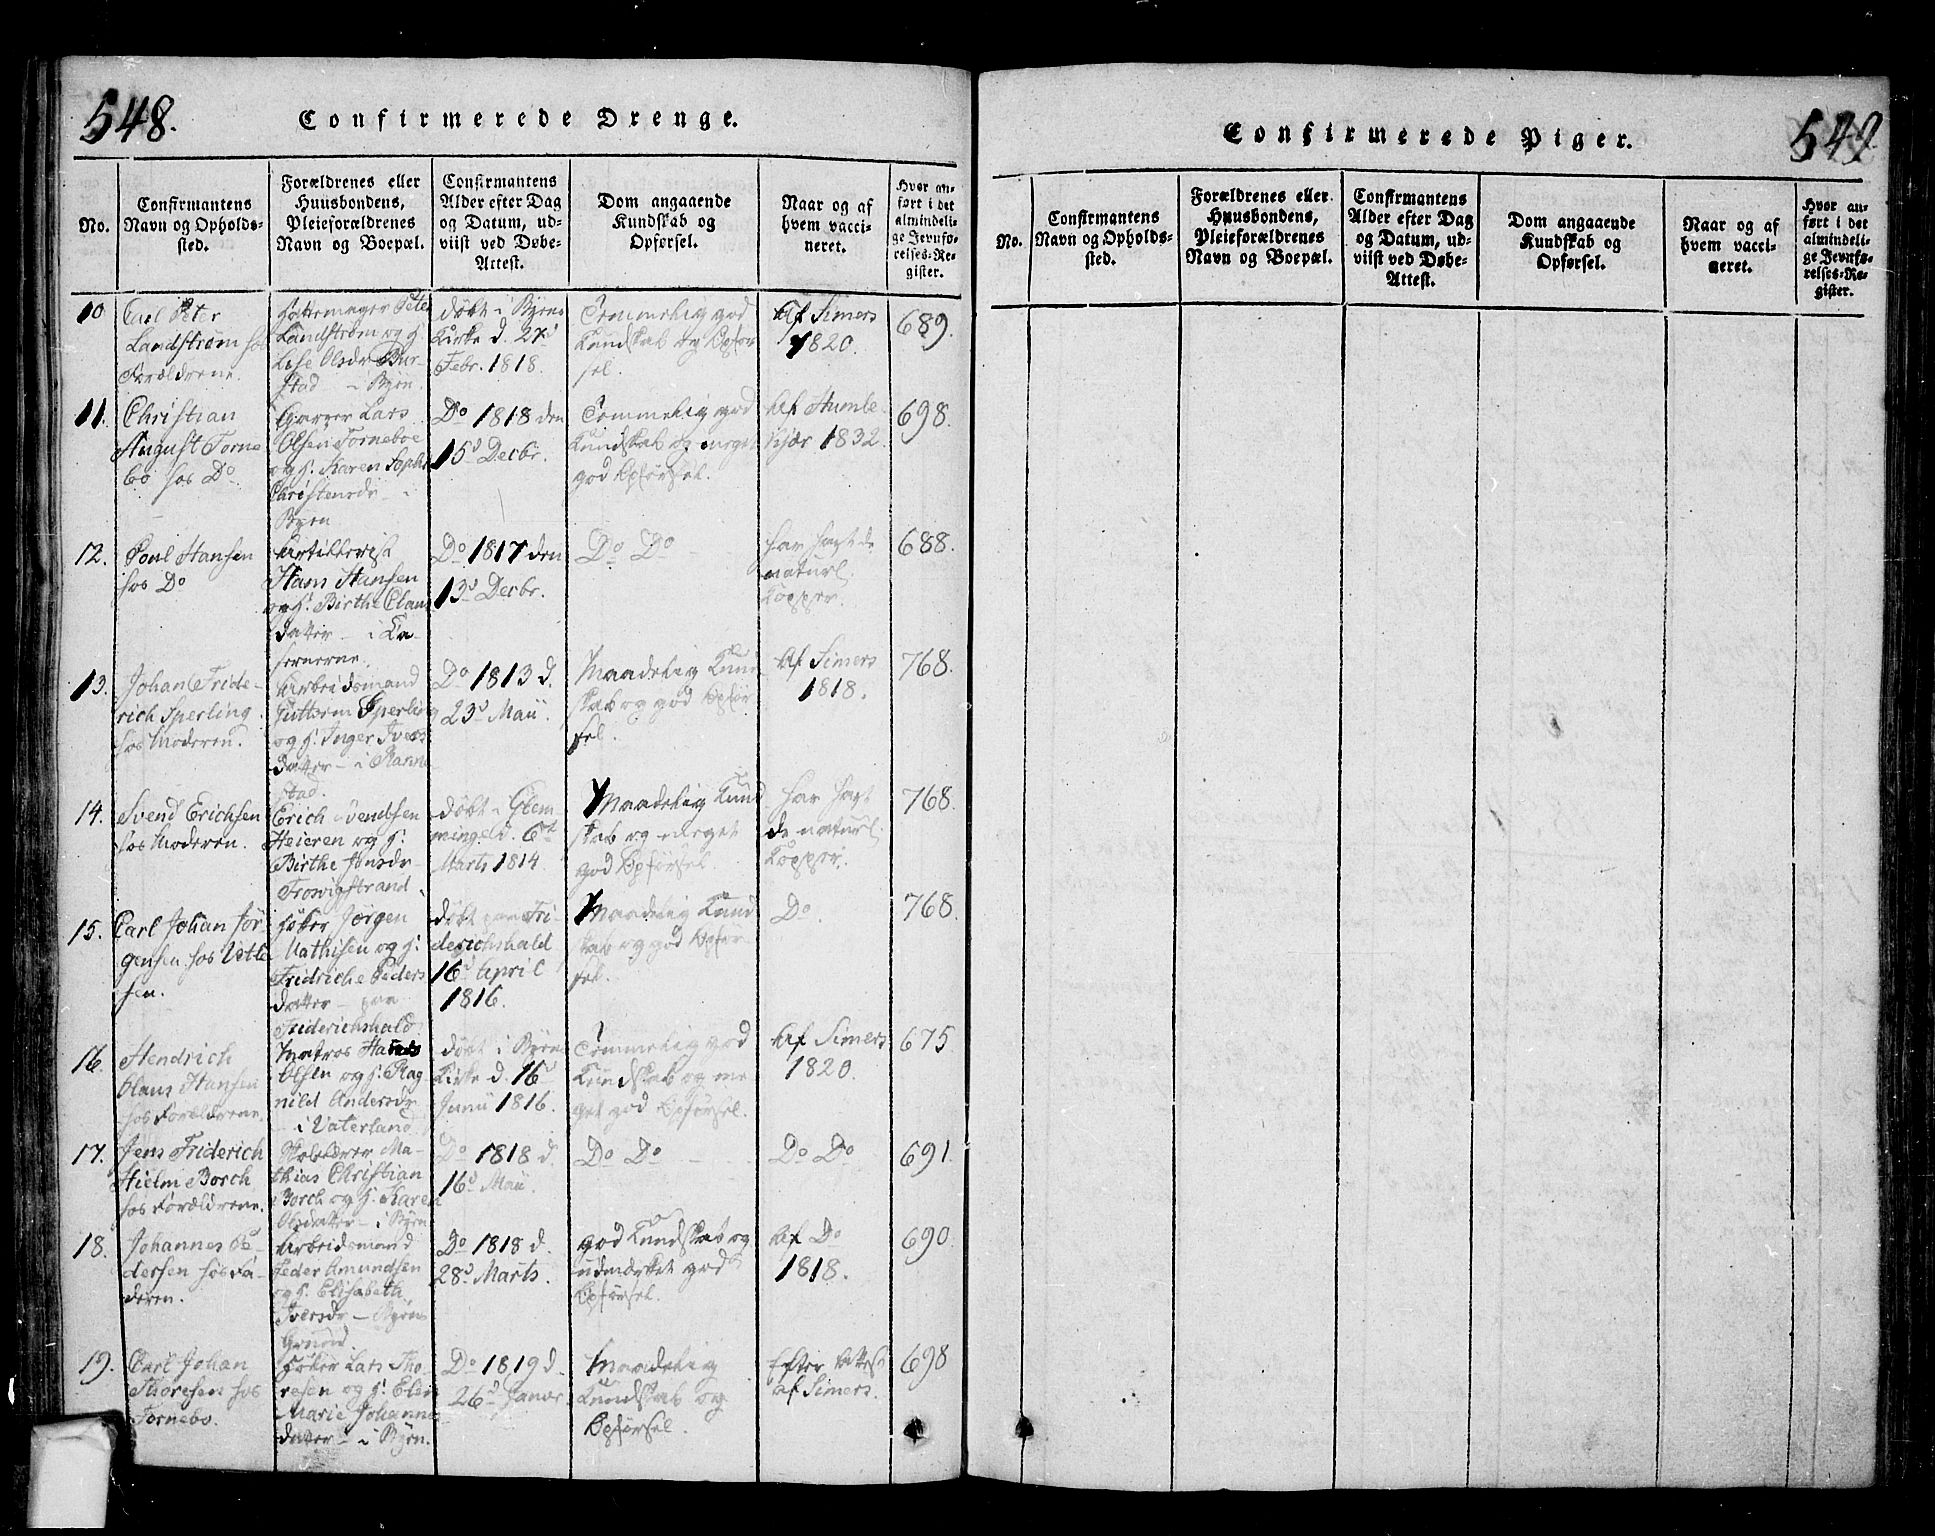 548.
Confirmerede Drenge.
No.
Confirmantens
Navn og Opholds-
sted.
Forældrenes eller
Huusbondens,
Pleieforældrenes
Navn og Boepæl.
Confirmantens
Alder efter Dag
og Datum, ud-
viist ved Døbe-
Attest.
Dom angaaende
Kundskab og
Opførsel.
Naar og af
hvem vacci-
neret.
Hvor an-
ført i det
almindeli-
ge Jevnfø-
relses-Re-
gister.
10
Carl Peter
Landstrøm hos
Forældrene.
Hattemager Peter
Landstrøm og H.
Lise Olsdr Bur-
stad - i Byen.
døbt i Byens
Kirke d. 27d
Febr. 1818.
Temmelig god
Kundskab og Opfør
sel.
Af Simers
1820.
689.
11.
Christian
August Torne
bo hos Do
Garver Lars
Olsen Torneboe
og H. Karen Sophi
Christensdr - i
Byen
Do 1818 den
15d Decbr.
Temmelig god
Kundskab og meget
god Opførsel.
Af Humle
kjær 1832.
698.
12.
Poul Hansen
hos Do
Artillerist
Hans Hansen
og H. Birthe Claus
datter - i Ca-
sernerne.
Do 1817 den
13d Decbr.
Do Do -
har havt de
naturl.
Kopper.
688.
13.
Johan Fride-
rich Sperling
hos Moderen.
Arbeidsmand
Guttorm Sperling
og H. Inger Ivers
datter - i Ranne
stad.
Do 1813 d.
23d Maii.
Maadelig Kund
skab og god Opfør
sel.
Af Simers
1818.
768.
14.
Svend Erichsen
hos Moderen.
Erich Svendsen
Heieren og H.
Birthe Jensdr
Trosvigstrand
døbt i Glem
minge d. 6te
Marts 1814
Maadelig Kund
skab og meget
god Opførsel
har havt
de naturl.
Kopper.
768.
15.
Carl Johan Jør-
gensen hos Otte
sen.
Høker Jørgen
Mathisen og H.
Fridriche Peders
datter - paa
Friderichshald
døbt paa Fri-
derichshald
16d April
1816.
Maadelig Kund
skab og god Opfør-
sel.
Do
768.
16.
Hendrich
Claus Hansen
hos Forældrene.
Matros Hans
Olsen og H. Rag-
nild Andersdr
- i Vaterland
døbt i Byens
Kirke d. 16d
Junii 1816.
Temmelig god
Kundskab og me
get god Opførsel.
Af Simers
1820.
675
17.
Jens Friderich
Hielm Borch
hos Forældrene.
Skolelærer Ma-
thias Christian
Borch og H. Karen
Olsdatter - i Byen
Do 1818 d.
16d Maii.
Do Do -
Do Do
691.
18.
Johannes Pe-
dersen hos Fa-
deren.
Arbeidsmand
Peder Amundsen
og H. Elisabeth
Iversdr - Byens
Grund
Do 1818 d.
28d Marts.
god Kundskab og
udmærket god
Opførsel.
Af Do
1818.
690.
19.
Carl Johan
Thoresen hos
Tornebo.
Høker Lars Tho
resen og H. Elen
Marie Johannes
datter - i Byen.
Do 1819 d.
26d Januar.
Maadelig
Kundskab og
Opførsel.
Efter Attest
af Simers.
698
549
Confirmerede Piger.
No.
Confirmantens
Navn og Opholds-
sted.
Forældrenes eller
Huusbondens,
Pleieforældrenes
Navn og Boepæl.
Confirmantens
Alder efter Dag
og Datum, ud-
viist ved Døbe-
Attest.
Dom angaaende
Kundskab og
Opførsel.
Naar og af
hvem vacci-
neret.
Hvor an-
ført i det
almindeli-
ge Jevnfø-
relses-Re-
gister.